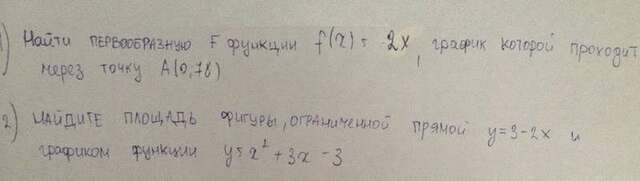 1) Найти ПЕРВООБРАЗНУЮ F функции f(x) = 2x, график которой проходит
через точку A(0,78)
2) НАЙДИТЕ ПЛОЩАДЬ ФИГУРЫ, ОГРАНИЧЕННОЙ ПРЯМОЙ y=3-2x и
графиком функции y=x²+3x-3